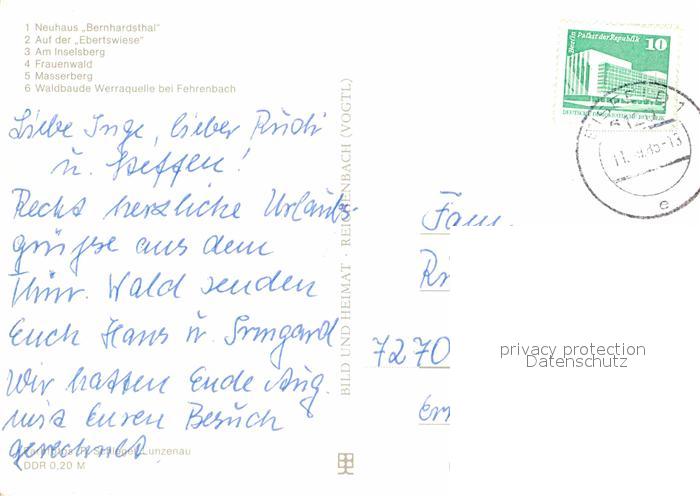 1 Neuhaus „Bernhardsthal“
2 Auf der „Ebertswiese“
3 Am Inselsberg
4 Frauenwald
5 Masserberg
6 Waldbaude Werraquelle bei Fehrenbach
Liebe Inge, lieber Rudi
u. Steffen!
Recht herzliche Urlaubs-
grüße aus dem
Thür. Wald senden
Euch Hans u. Irmgard
Wir hatten Ende Aug.
mit Euren Besuch
gerechnet.
Lunzenau
DDR 0,20 M
BILD UND HEIMAT · REICHENBACH (VOGTL)
Berlin Palast der Republik
10
DEUTSCHE DEMOKRATISCHE REPUBLIK
e
Fam.
7270
privacy protection
Datenschutz